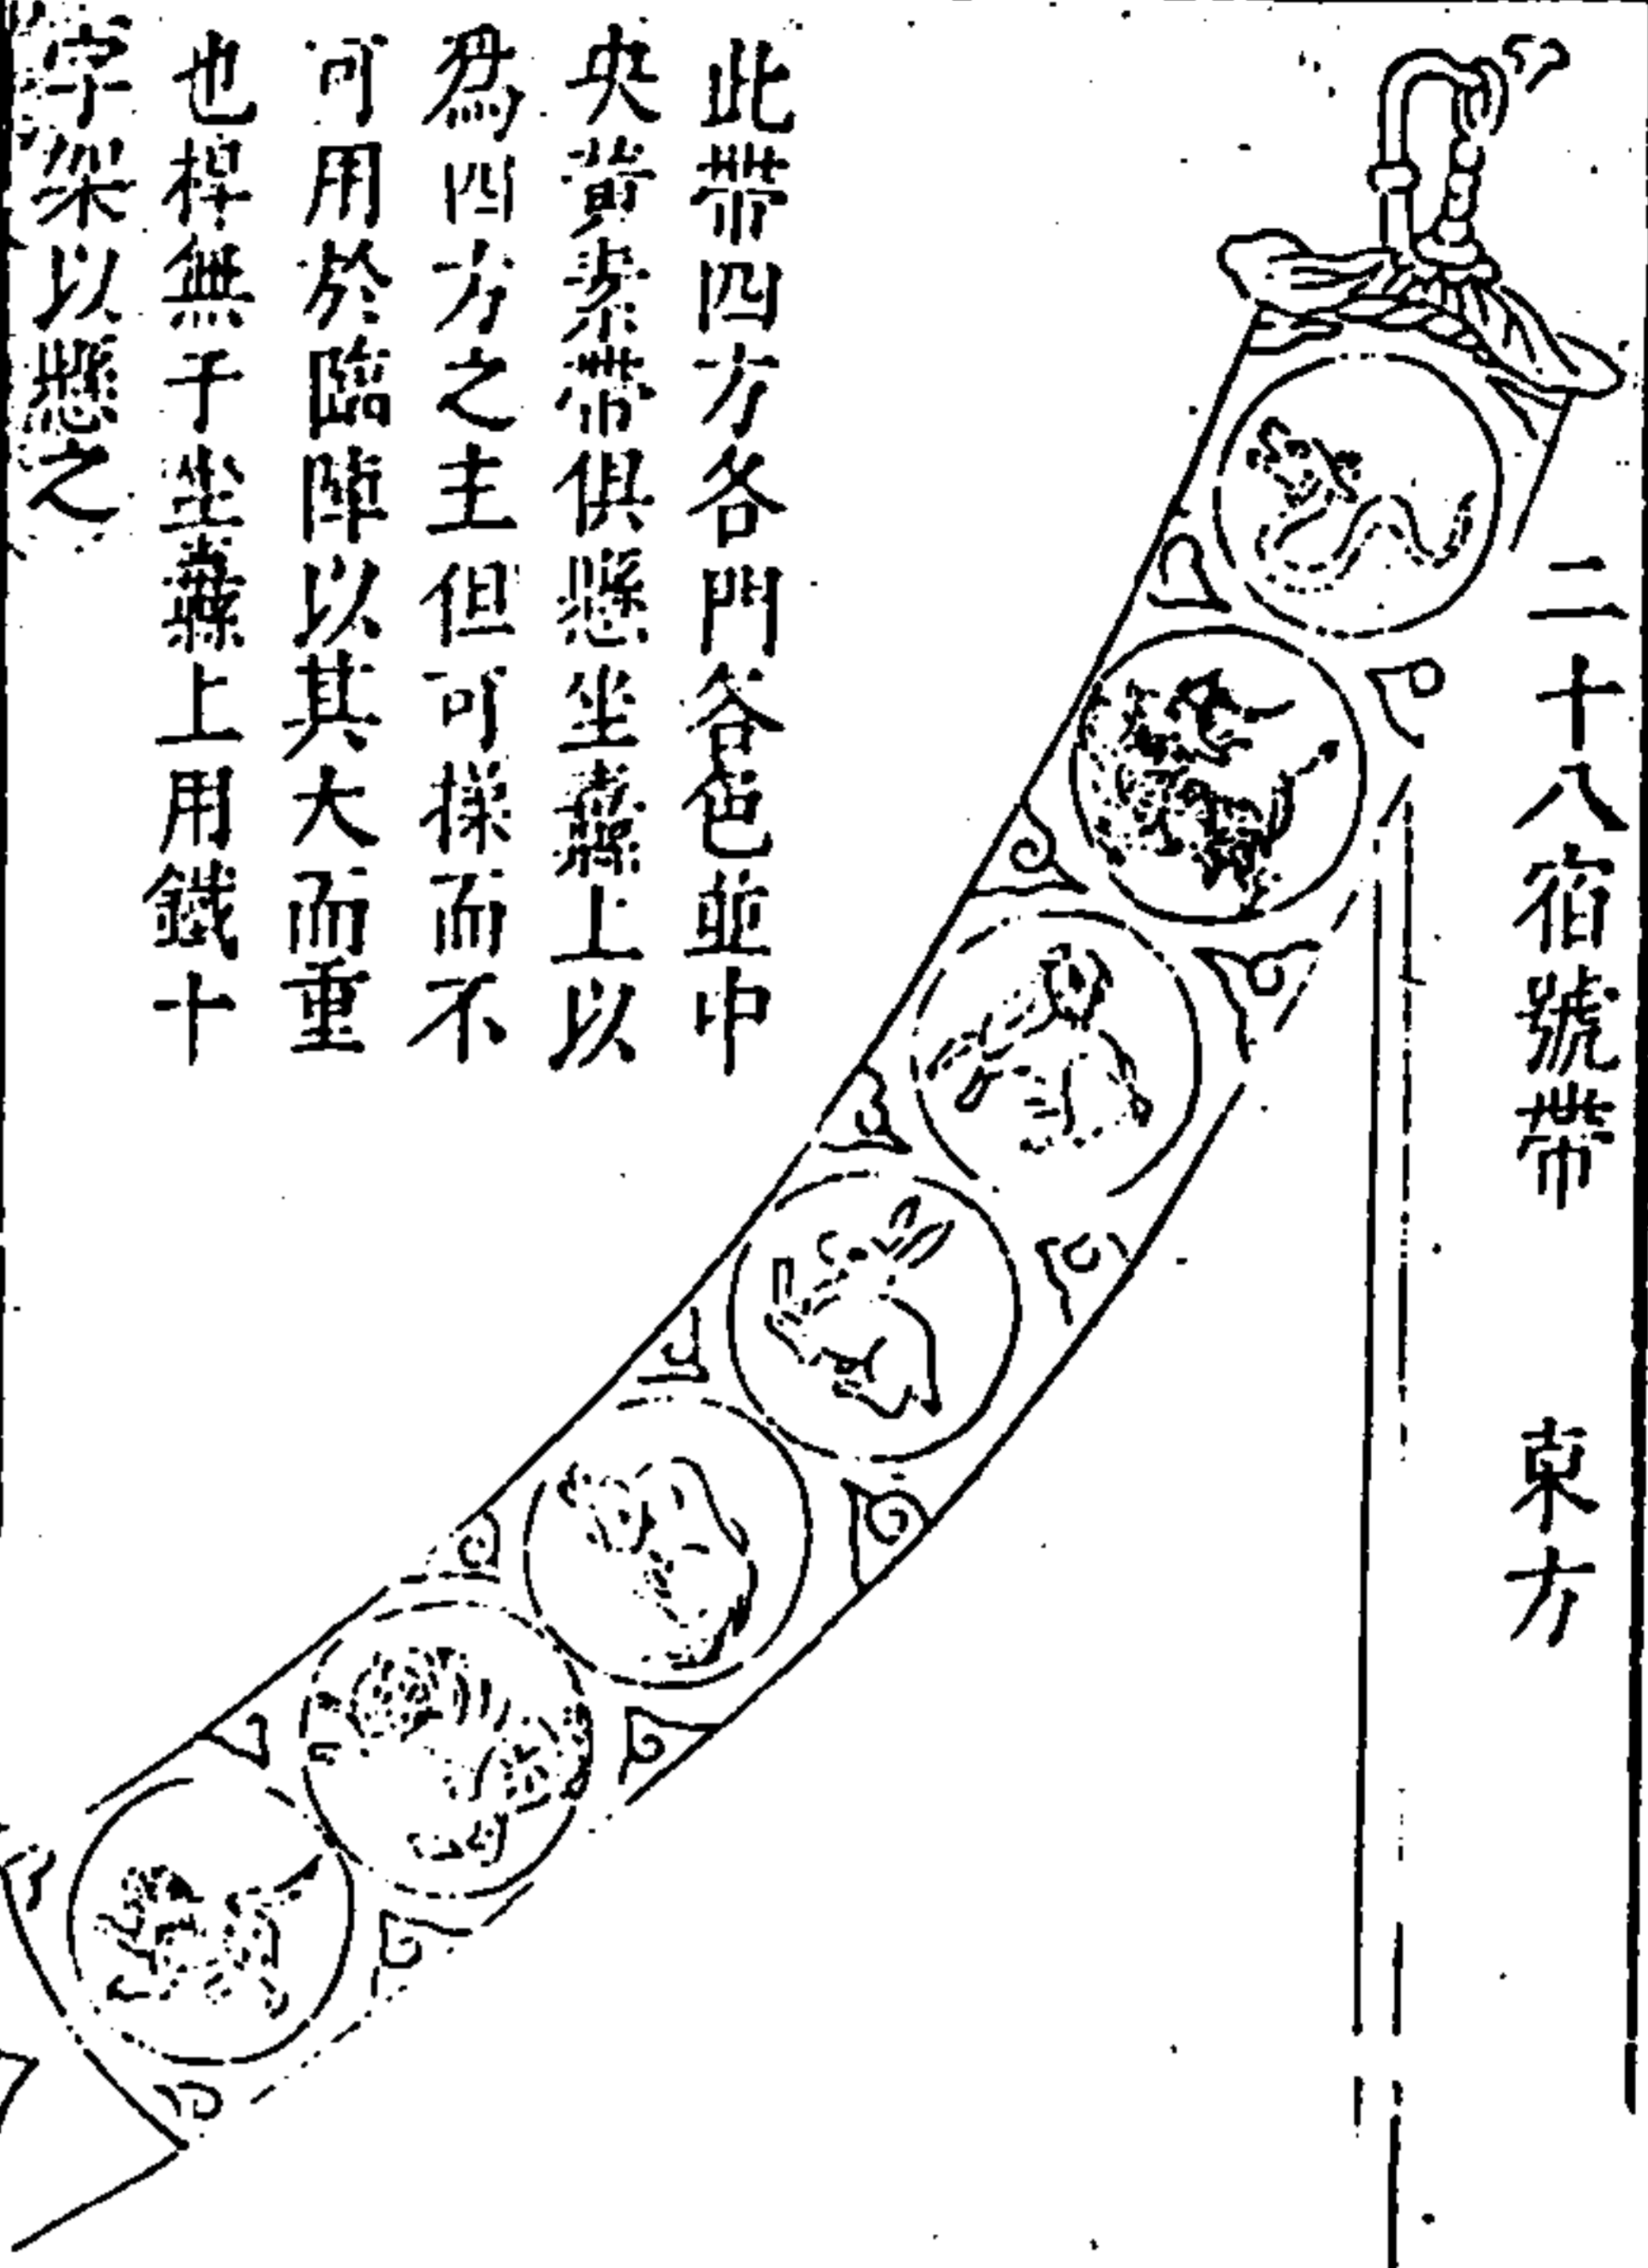 二十八宿號帶 東方
此帶四方各門各色並中
央黃素帶俱懸坐纛上以
爲四方之主但可操而不
可用於臨陣以其大而重
也桿無于坐纛上用鐵十
字架以懸之